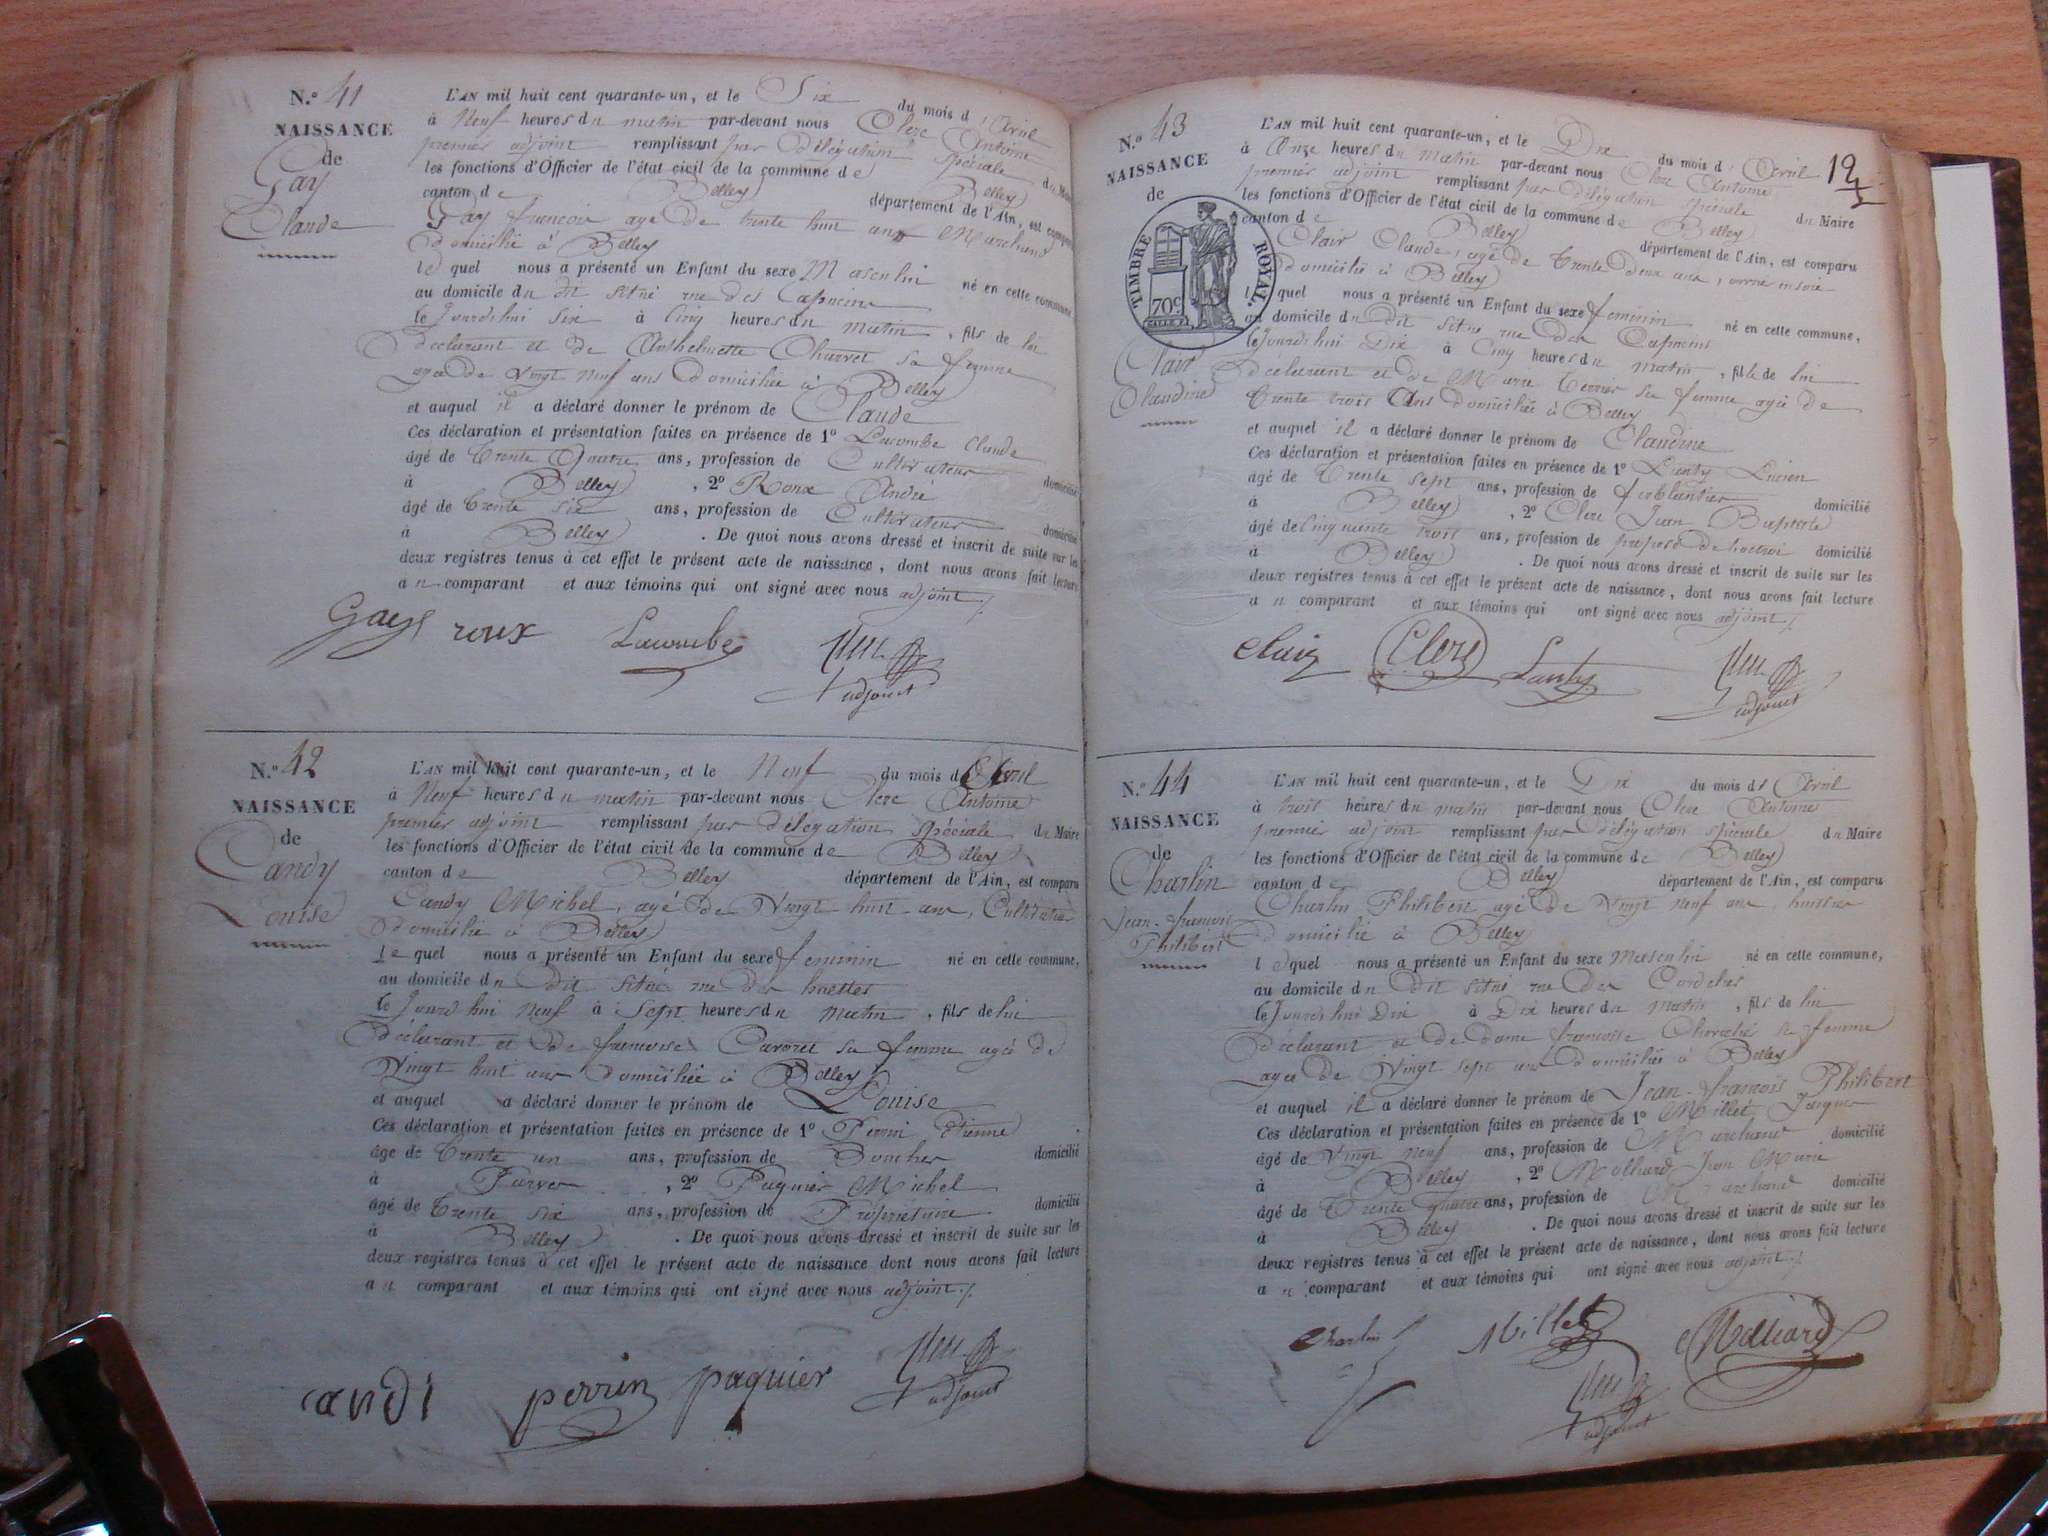 N.º 41
NAISSANCE
de
Gay
Claude
L'AN mil huit cent quarante-un, et le Six du mois d'Avril
à Neuf heures du matin par-devant nous Clerc Antoine
premier adjoint remplissant par délégation spéciale du Maire
les fonctions d'Officier de l'état civil de la commune de Belley
canton de Belley département de l'Ain, est comparu
Gay françois agé de trente huit ans Marchand
domicilié à Belley
lequel nous a présenté un Enfant du sexe Masculin né en cette commune,
au domicile du dit situé rue des Capucins
le Jourdhui six à Cinq heures du matin, fils de lui
déclarant et de Anthelmette Charvet sa femme
agée de Vingt neuf ans domiciliée à Belley
et auquel il a déclaré donner le prénom de Claude
Ces déclaration et présentation faites en présence de 1º Lacombe Claude
âgé de trente Quatre ans, profession de Cultivateur domicilié
à Belley, 2º Roux André
âgé de trente six ans, profession de Cultivateur domicilié
à Belley. De quoi nous avons dressé et inscrit de suite sur les
deux registres tenus à cet effet le présent acte de naissance, dont nous avons fait lecture
au comparant et aux témoins qui ont signé avec nous adjoint ./.
Gay roux Lacombe Clerc
adjoint
N.º 42
NAISSANCE
de
Candy
Louise
L'AN mil huit cent quarante-un, et le Neuf du mois d'Avril
à Neuf heures du matin par-devant nous Clerc Antoine
premier adjoint remplissant par délégation spéciale du Maire
les fonctions d'Officier de l'état civil de la commune de Belley
canton de Belley département de l'Ain, est comparu
Candy Michel, agé de Vingt huit ans, Cultivateur
domicilié à Belley
lequel nous a présenté un Enfant du sexe feminin né en cette commune,
au domicile du dit situé rue des
le Jourdhui neuf à Sept heures du matin, fils de lui
déclarant et de françoise Cavoret sa femme agée de
Vingt huit ans domiciliée à Belley
et auquel a déclaré donner le prénom de Louise
Ces déclaration et présentation faites en présence de 1º Perrin Etienne
âgé de trente un ans, profession de Boucher domicilié
à Parves, 2º Paquier Michel
âgé de trente six ans, profession de Propriétaire domicilié
à Belley. De quoi nous avons dressé et inscrit de suite sur les
deux registres tenus à cet effet le présent acte de naissance dont nous avons fait lecture
au comparant et aux témoins qui ont signé avec nous adjoint ./.
candi perrin paquier Clerc
adjoint
12
N.º 43
NAISSANCE
de
TIMBRE ROYAL.
70c
Clair
Claudine
L'AN mil huit cent quarante-un, et le Dix du mois d'Avril
à Onze heures du matin par-devant nous Clerc Antoine
premier adjoint remplissant par délégation spéciale du Maire
les fonctions d'Officier de l'état civil de la commune de Belley
canton de Belley département de l'Ain, est comparu
Clair Claude, agé de trente deux ans, ouvrié en soie
domicilié à Belley
lequel nous a présenté un Enfant du sexe feminin né en cette commune,
au domicile du dit situé rue des Capucins
le Jourdhui Dix à Cinq heures du matin, fille de lui
déclarant et de Marie Terrier sa femme agée de
trente trois Ans domiciliée à Belley
et auquel il a déclaré donner le prénom de Claudine
Ces déclaration et présentation faites en présence de 1º Lenty Lucien
âgé de trente sept ans, profession de ferblantier domicilié
à Belley, 2º Clerc Jean Baptiste
âgé de Cinquante trois ans, profession de préposé de l'octroi domicilié
à Belley. De quoi nous avons dressé et inscrit de suite sur les
deux registres tenus à cet effet le présent acte de naissance, dont nous avons fait lecture
au comparant et aux témoins qui ont signé avec nous adjoint ./.
Clair Clerc Lenty Clerc
adjoint
N.º 44
NAISSANCE
de
Charlin
Jean-françois
Philibert
L'AN mil huit cent quarante-un, et le Dix du mois d'Avril
à trois heures du matin par-devant nous Clerc Antoine
premier adjoint remplissant par délégation spéciale du Maire
les fonctions d'Officier de l'état civil de la commune de Belley
canton de Belley département de l'Ain, est comparu
Charlin Philibert agé de Vingt neuf ans huissier
domicilié à Belley
lequel nous a présenté un Enfant du sexe masculin né en cette commune,
au domicile du Dit situé rue des Cordeliers
le Jourdhui Dix à Dix heures du matin, fils de lui
déclarant et de dame françoise sa femme
agée de Vingt sept ans domiciliée à Belley
et auquel il a déclaré donner le prénom de Jean-françois Philibert
Ces déclaration et présentation faites en présence de 1º Millet Jacques
âgé de Vingt neuf ans, profession de Marchand domicilié
à Belley, 2º Molliard Jean Marie
âgé de trente quatre ans, profession de Marchand domicilié
à Belley. De quoi nous avons dressé et inscrit de suite sur les
deux registres tenus à cet effet le présent acte de naissance, dont nous avons fait lecture
au comparant et aux témoins qui ont signé avec nous adjoint ./.
Charlin Millet Molliard
Clerc
adjoint